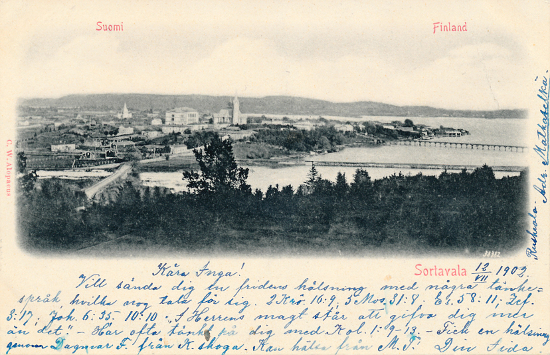 Suomi
Finland
C. W. Alopaeus
Sortavala 12/VII 1902.
Kära Inga!
Vill sända dig en fridens hälsning med några tänke-
språk, hvilka nog tala för sig. 2 Krö. 16:9, 5 Mos. 31:8; Es. 58:11; Zef.
3:17; Joh. 6:35. 10:10. "I Herrens magt står att gifva dig mer
än det." - Har ofta tänkt på dig med Kol. 1-9-13. - Fick en hälsning
genom Dagmar F. från K. skoga. Kan hälsa från M. S. Din Frida
Ruskeala. Adr. Matkaselkä.